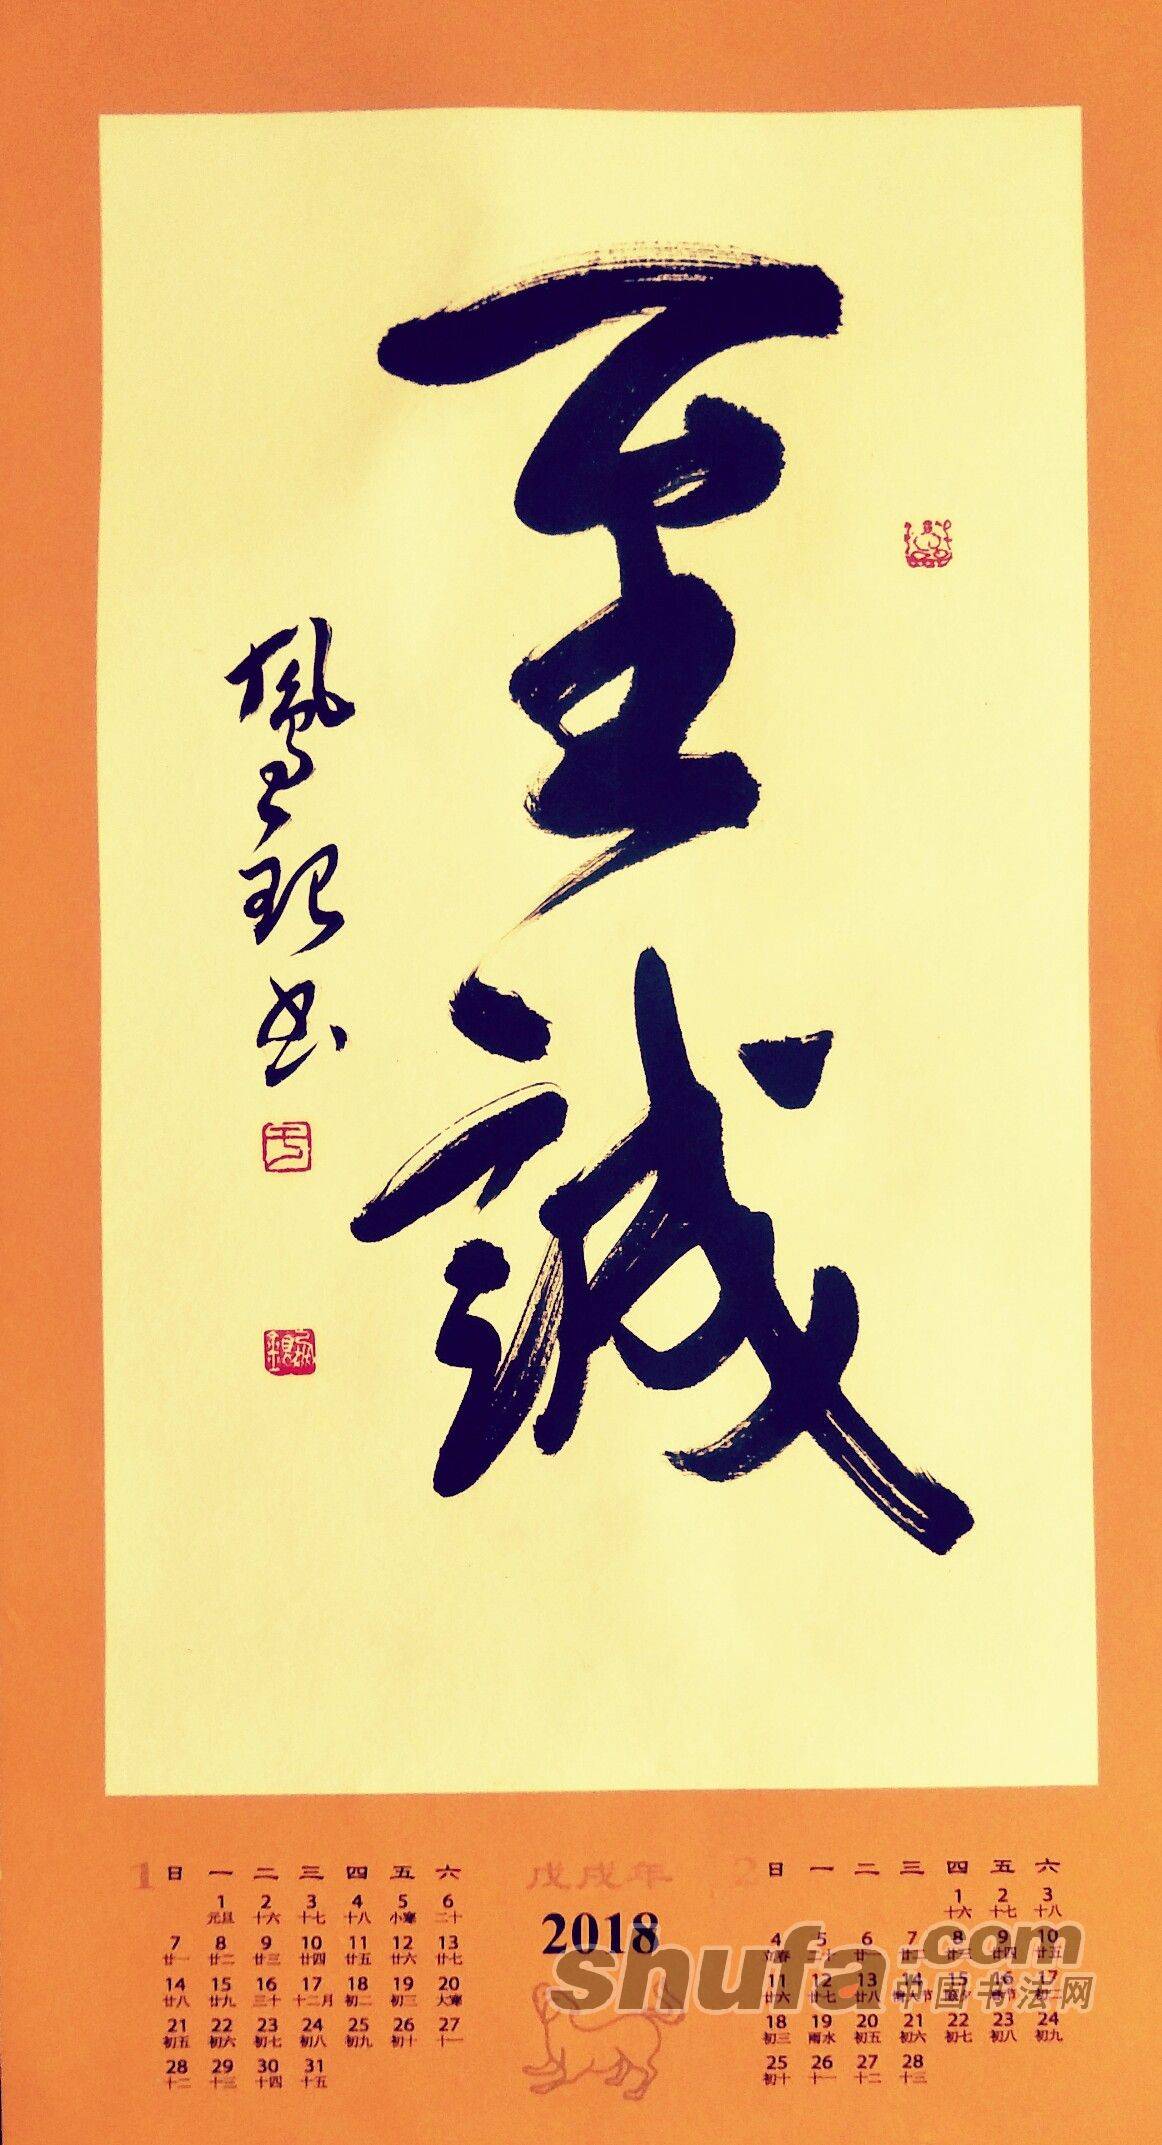 至誠
鳳 書
1
日 一 二 三 四 五 六
1 2 3 4 5 6
元旦 十六 十七 十八 小寒 二十
7 8 9 10 11 12 13
廿一 廿二 廿三 廿四 廿五 廿六 廿七
14 15 16 17 18 19 20
廿八 廿九 三十 十二月 初二 初三 大寒
21 22 23 24 25 26 27
初五 初六 初七 初八 初九 初十 十一
28 29 30 31
十二 十三 十四 十五
戊戌年
2018
2
日 一 二 三 四 五 六
1 2 3
十六 十七 十八
4 5 6 7 8 9 10
立春 二十 廿一 廿二 廿三 廿四 廿五
11 12 13 14 15 16 17
廿六 廿七 廿八 情人节 除夕 春节 初二
18 19 20 21 22 23 24
初三 雨水 初五 初六 初七 初八 初九
25 26 27 28
初十 十一 十二 十三
shufa.com
中国书法网